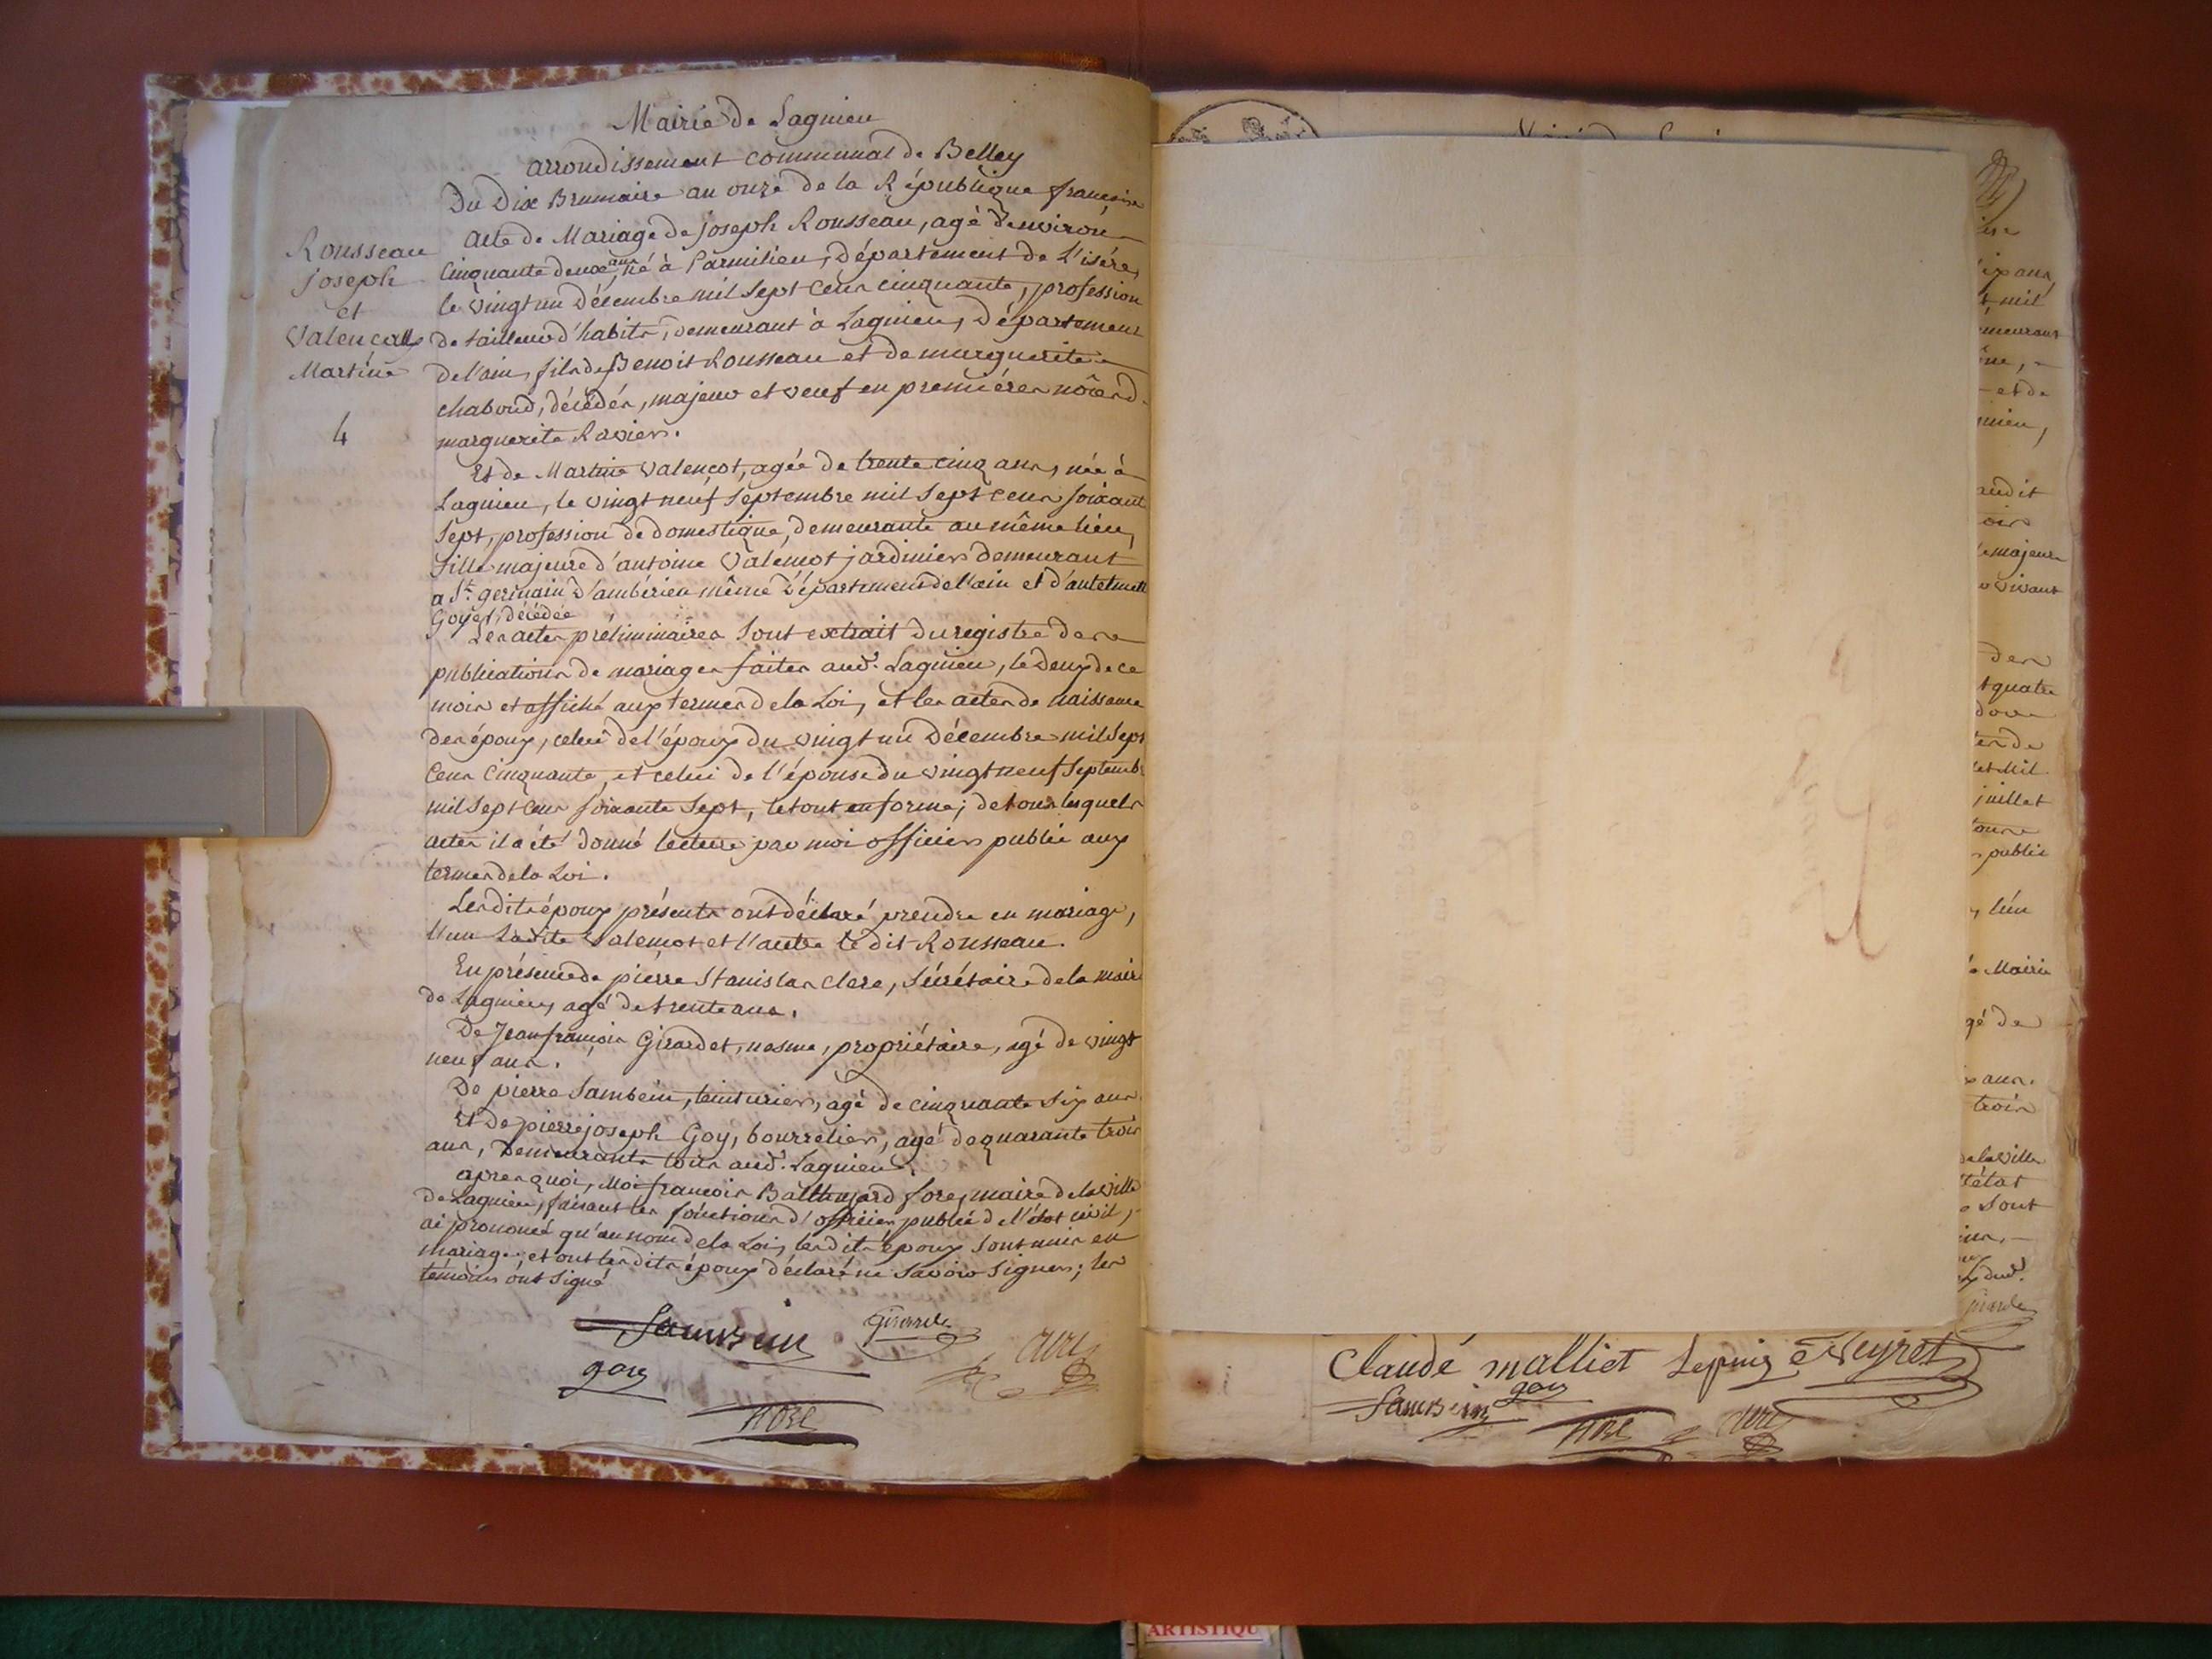 Mairie de Lagnieu
arrondissement communal de Belley
Du Dix Brumaire an onze de la République française
Rousseau
Joseph
et
Valencot
Martine
4
acte de Mariage de joseph Rousseau, agé denviron
cinquante deux ans, né à Parmilieu, Département de L'isére,
le vingt un Décembre mil sept cens cinquante, profession
de tailleur d'habits, demeurant à Lagnieu, Département
de l'ain, fils de Benoit Rousseau et de marguerite
chaboud, décédés, majeur et veuf en premiéres nôces d.
marguerite Ravier.
Et de Martine Valencot, agée de trente cinq ans, née à
Lagnieu, le vingt neuf Septembre mil Sept cens soixant
Sept, profession de domestique, demeurante au même lieu,
fille majeure d'antoine Valencot jardinier demeurant
a St. germain d'ambérieu même Département de l'ain et d'antelmette
Goyet, décédée
Les actes préliminaires sont extrait du registre des
publications de mariages faites aud. Lagnieu, le deux de ce
mois et affiché aux termes de la Loi, et les actes de naissance
des époux, celui de l'époux du vingt un Décembre mil Sept
cens cinquante, et celui de l'épouse du vingt neuf Septemb.
mil Sept cens soixante Sept, le tout en forme; de tous lesquels
actes il a été donné lecture par moi officier public aux
termes de la Loi.
Lesdits époux présents ont déclaré prendre en mariage,
l'un Ladite Valencot et l'autre le dit Rousseau.
En présence de pierre Stanislas Clerc, Sécrétaire de la mairi
de Lagnieu, agé de trente ans.
De Jean françois Girardet, nosme, propriétaire, agé de vingt
neuf ans.
De pierre Sambein, teinturier, agé de cinquante Six ans
Et De pierre joseph Goy, bourrelier, agé de quarante trois
ans, Demeurants tous aud. Lagnieu.
apres quoi, Moi françois maire de la ville
de Lagnieu, faisant les fonctions d'officier public de l'état civil,
ai prononcé qu'au nom de la Loi, lesdits époux sont unis en
mariage; et ont lesdits époux déclaré ne savoir Signer; les
témoins ont Signé
Sambein Girarde
goy Clerc
ise
ans,
t mil
emeurant
et de
nieu,
audit
oir
majeure
vivant
des
t quatre
et Mil
juillet
public
lun
Mairie
gé de
ans.
trois
de la ville
l'état
Sont
dud.
Girarde
Claude malliet Lepuiz Veyret
Sambein goy
Clerc
ARTISTIQU